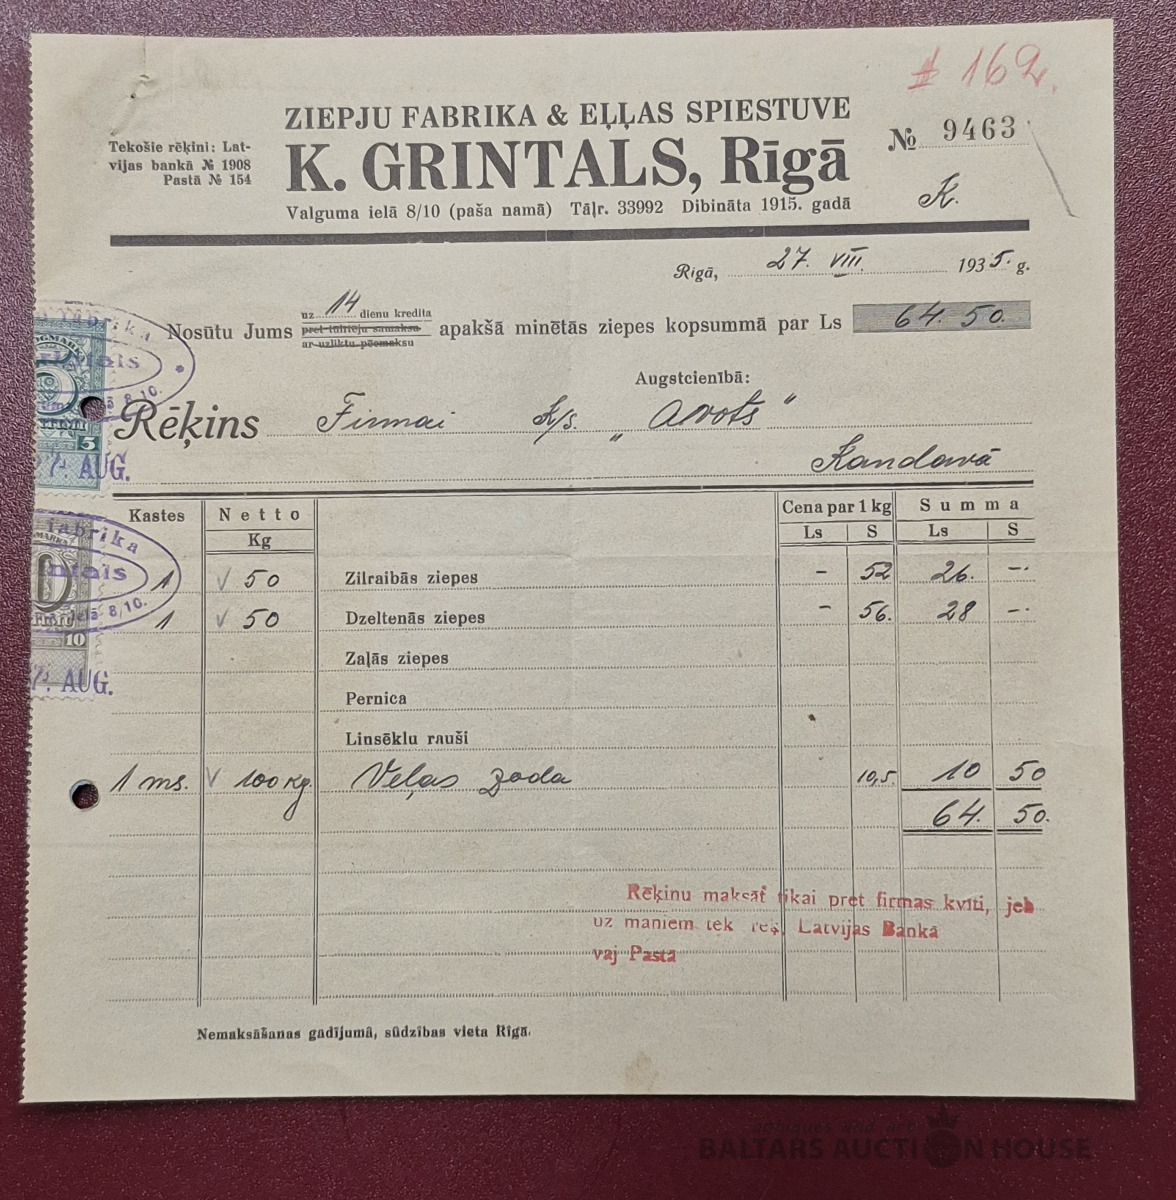 # 162.
ZIEPJU FABRIKA & EĻĻAS SPIESTUVE
K. GRINTALS, Rīgā
Valguma ielā 8/10 (paša namā) Tāļr. 33992 Dibināta 1915. gadā
Tekošie rēķini: Lat-
vijas bankā № 1908
Pastā № 154
№ 9463
K.
Rīgā, 27. VIII. 1935. g.
Nosūtu Jums uz 14 dienu kredita
pret tūlītēju samaksu
ar uzliktu pēcmaksu
apakšā minētās ziepes kopsummā par Ls 64. 50.
Augstcienībā:
Rēķins Firmai K/s. „Avots"
Kandavā
fabrika
8/10.
5
AUG.
fabrika
ielā 8/10.
10
AUG.
Kastes Netto Cena par 1 kg Summa
Kg Ls S Ls S
1 50 Zilraibās ziepes - 52 26. -.
1 50 Dzeltenās ziepes - 56. 28 -.
Zaļās ziepes
Pernica
Linsēklu rauši
1 ms. 100 kg. Veļas zoda 10,5. 10 50
64. 50.
Rēķinu maksāt tikai pret firmas kvīti, jeb
uz maniem tek rēķ. Latvijas Bankā
vaj Pastā
Nemaksāšanas gadījumā, sūdzības vieta Rīgā.
antiques and art
BALTARS AUCTION HOUSE